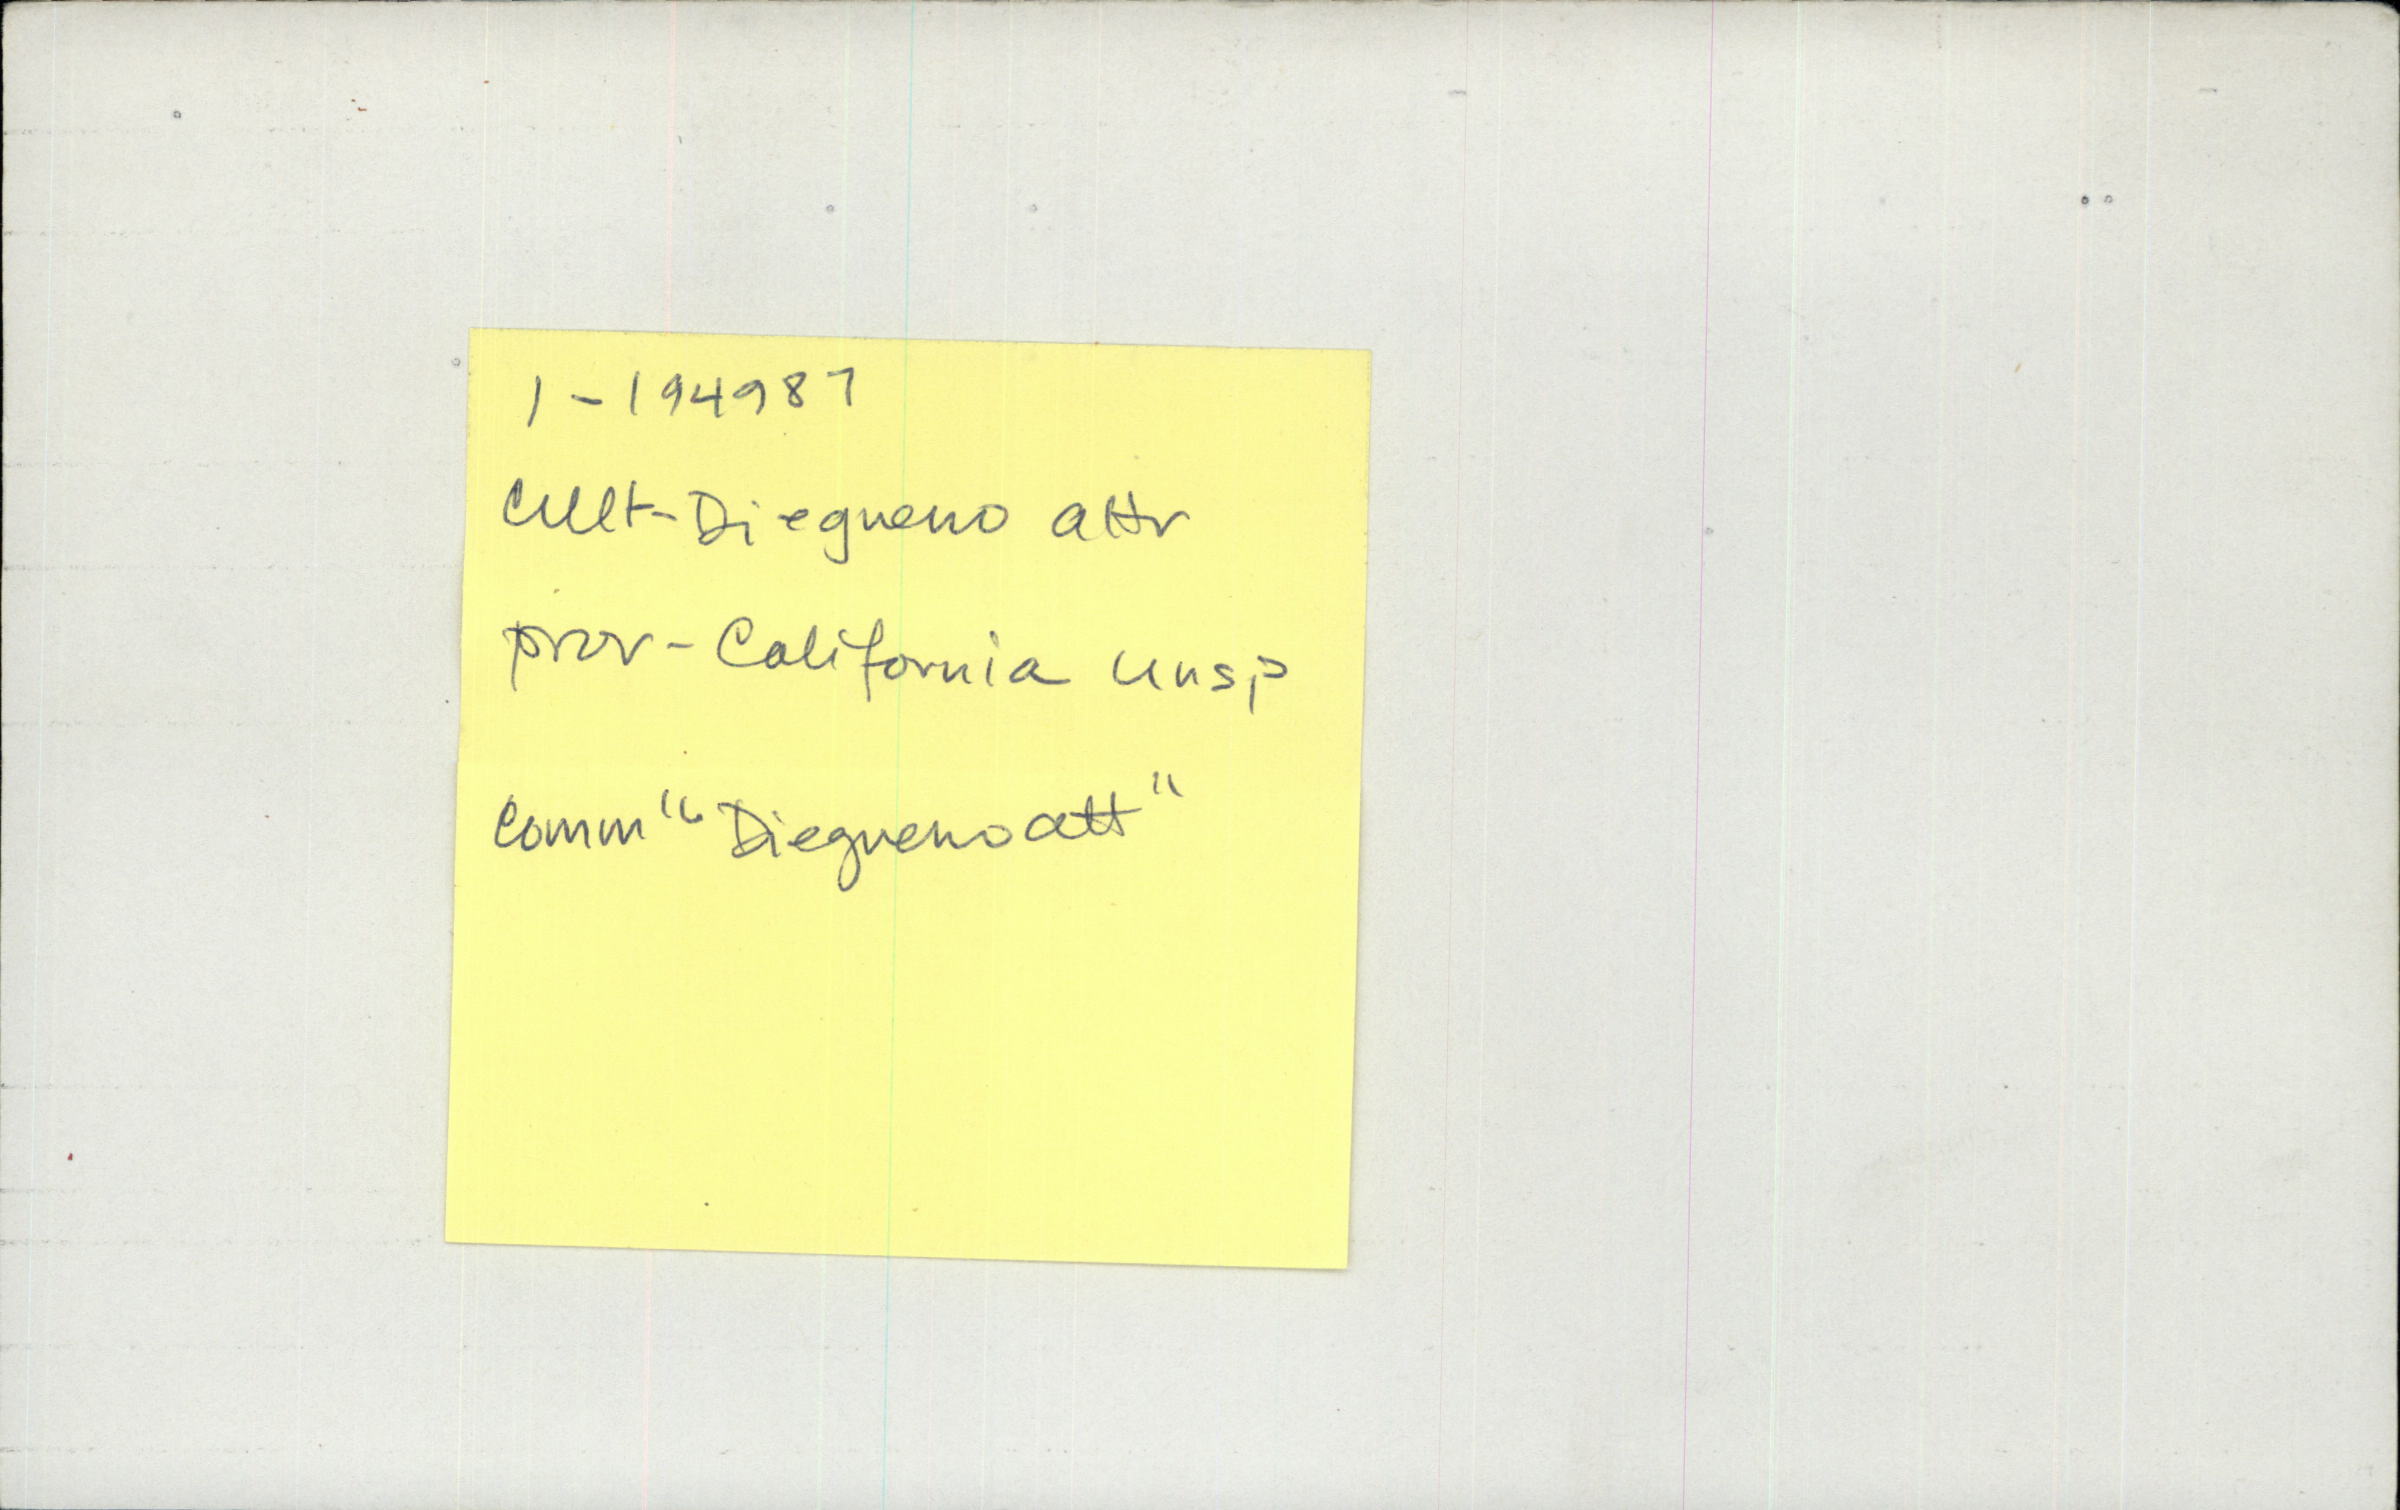 1-194987
Cult-Diegueno attr
prov-California unsp
Comm "Diegueno att"